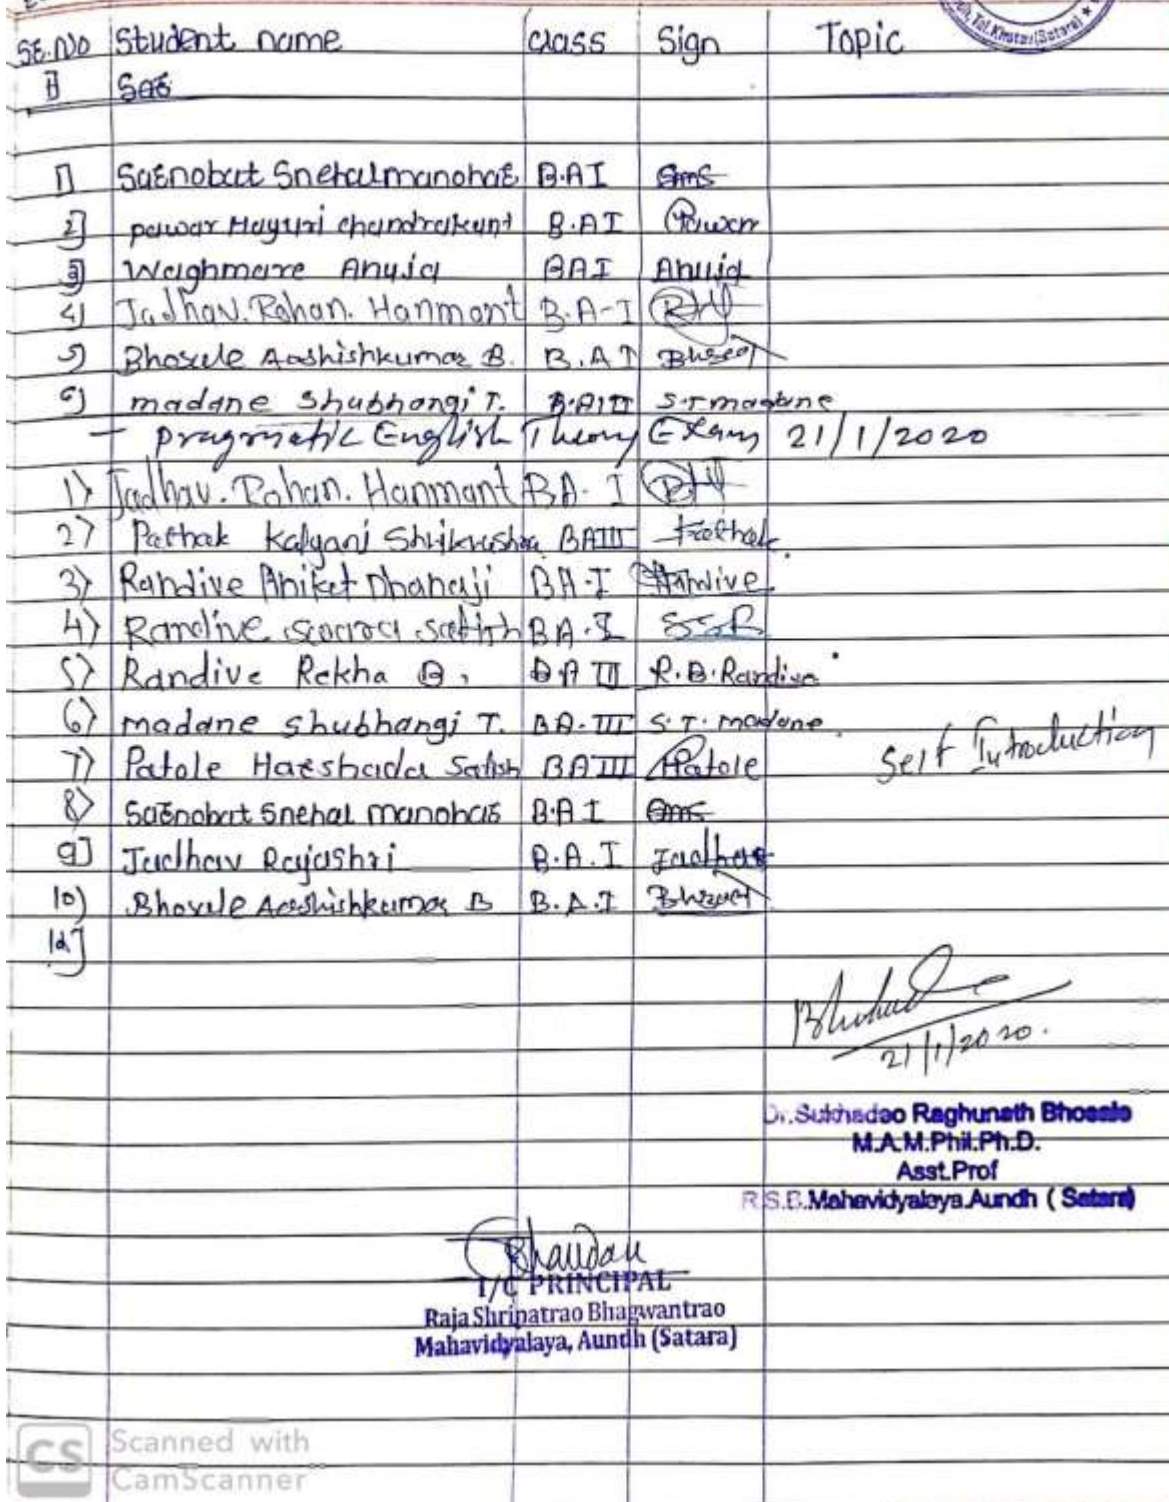 SE.NO Student name Class Sign Topic
1] Sae
1] Saenobat Snehalmanohae B.A I Sms
2] pawar Mayuri chandrakant B.A I Pawar
3] Waghmare Anuja BAI Anuja
4) Jadhav. Rohan. Hanmant B.A-I RHJ
5) Bhosale Aashishkumar B. B.A I
6) madane shubhangi T. B.A III S.T madane
- pragmatic English Theory Exam 21/1/2020
1) Jadhav. Rohan. Hanmant BA- I RHJ
2) Pathak Kalyani Shrikrushna BAIII Pathak
3) Randive Aniket Dhanaji BA-I Randive
4) Randive Satish BA-I SSR
5) Randive Rekha B. BA III R.B.Randive
6) madane shubhangi T. BA-III S.T. madane
7) Patole Haeshada Satish BAIII Patole
Self Introduction
8) Saenobat Snehal manohae B.A I Sms
9] Jadhav Rajashri B.A.I Jadhav
10) Bhosale Aashishkumar B B.A.I
12]
21/1/2020.
Dr.Sukhadeo Raghunath Bhosale
M.A.M.Phil.Ph.D.
Asst.Prof
R.S.B.Mahavidyalaya.Aundh ( Satara)
I/C PRINCIPAL
Raja Shripatrao Bhagwantrao
Mahavidyalaya, Aundh (Satara)
CS Scanned with
CamScanner